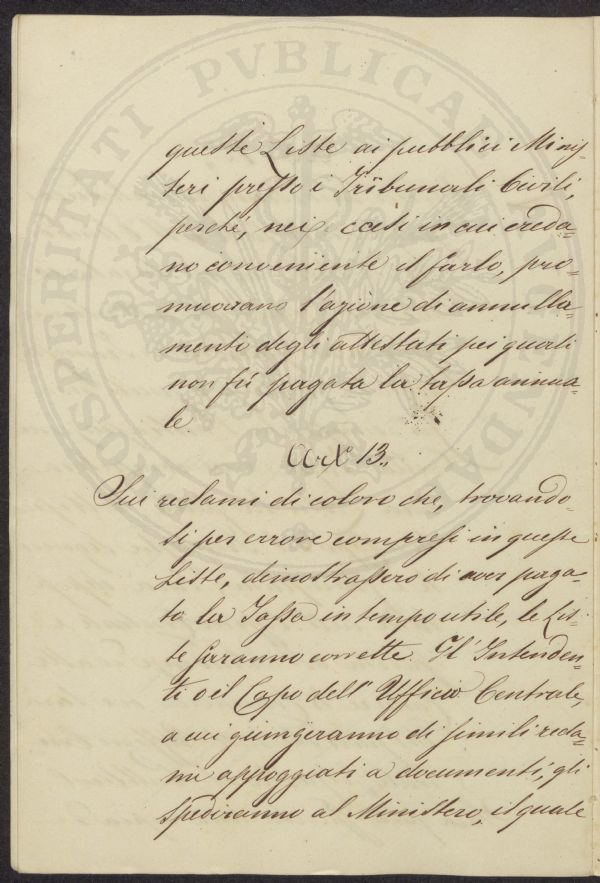 queste Liste ai pubblici Minis=
teri presso i Tribunali Civili,
perché, nei casi in cui creda=
no conveniente il farlo, pro=
muovano l'azione di annulla=
mento degli attestati pei quali
non fù pagata la tassa annua=
le.
Art° 13.
Sui reclami di coloro che, trovando=
si per errore compresi in queste
Liste, dimostrassero di aver paga=
to la Tassa in tempo utile, le Lis=
te saranno corrette. Gl' Intenden=
ti o il Capo dell' Ufficio Centrale,
a cui giungeranno di simili recla=
mi appoggiati a documenti, gli
spediranno al Ministero, il quale
PROSPERITATI PVBLICAE IVCVNDA